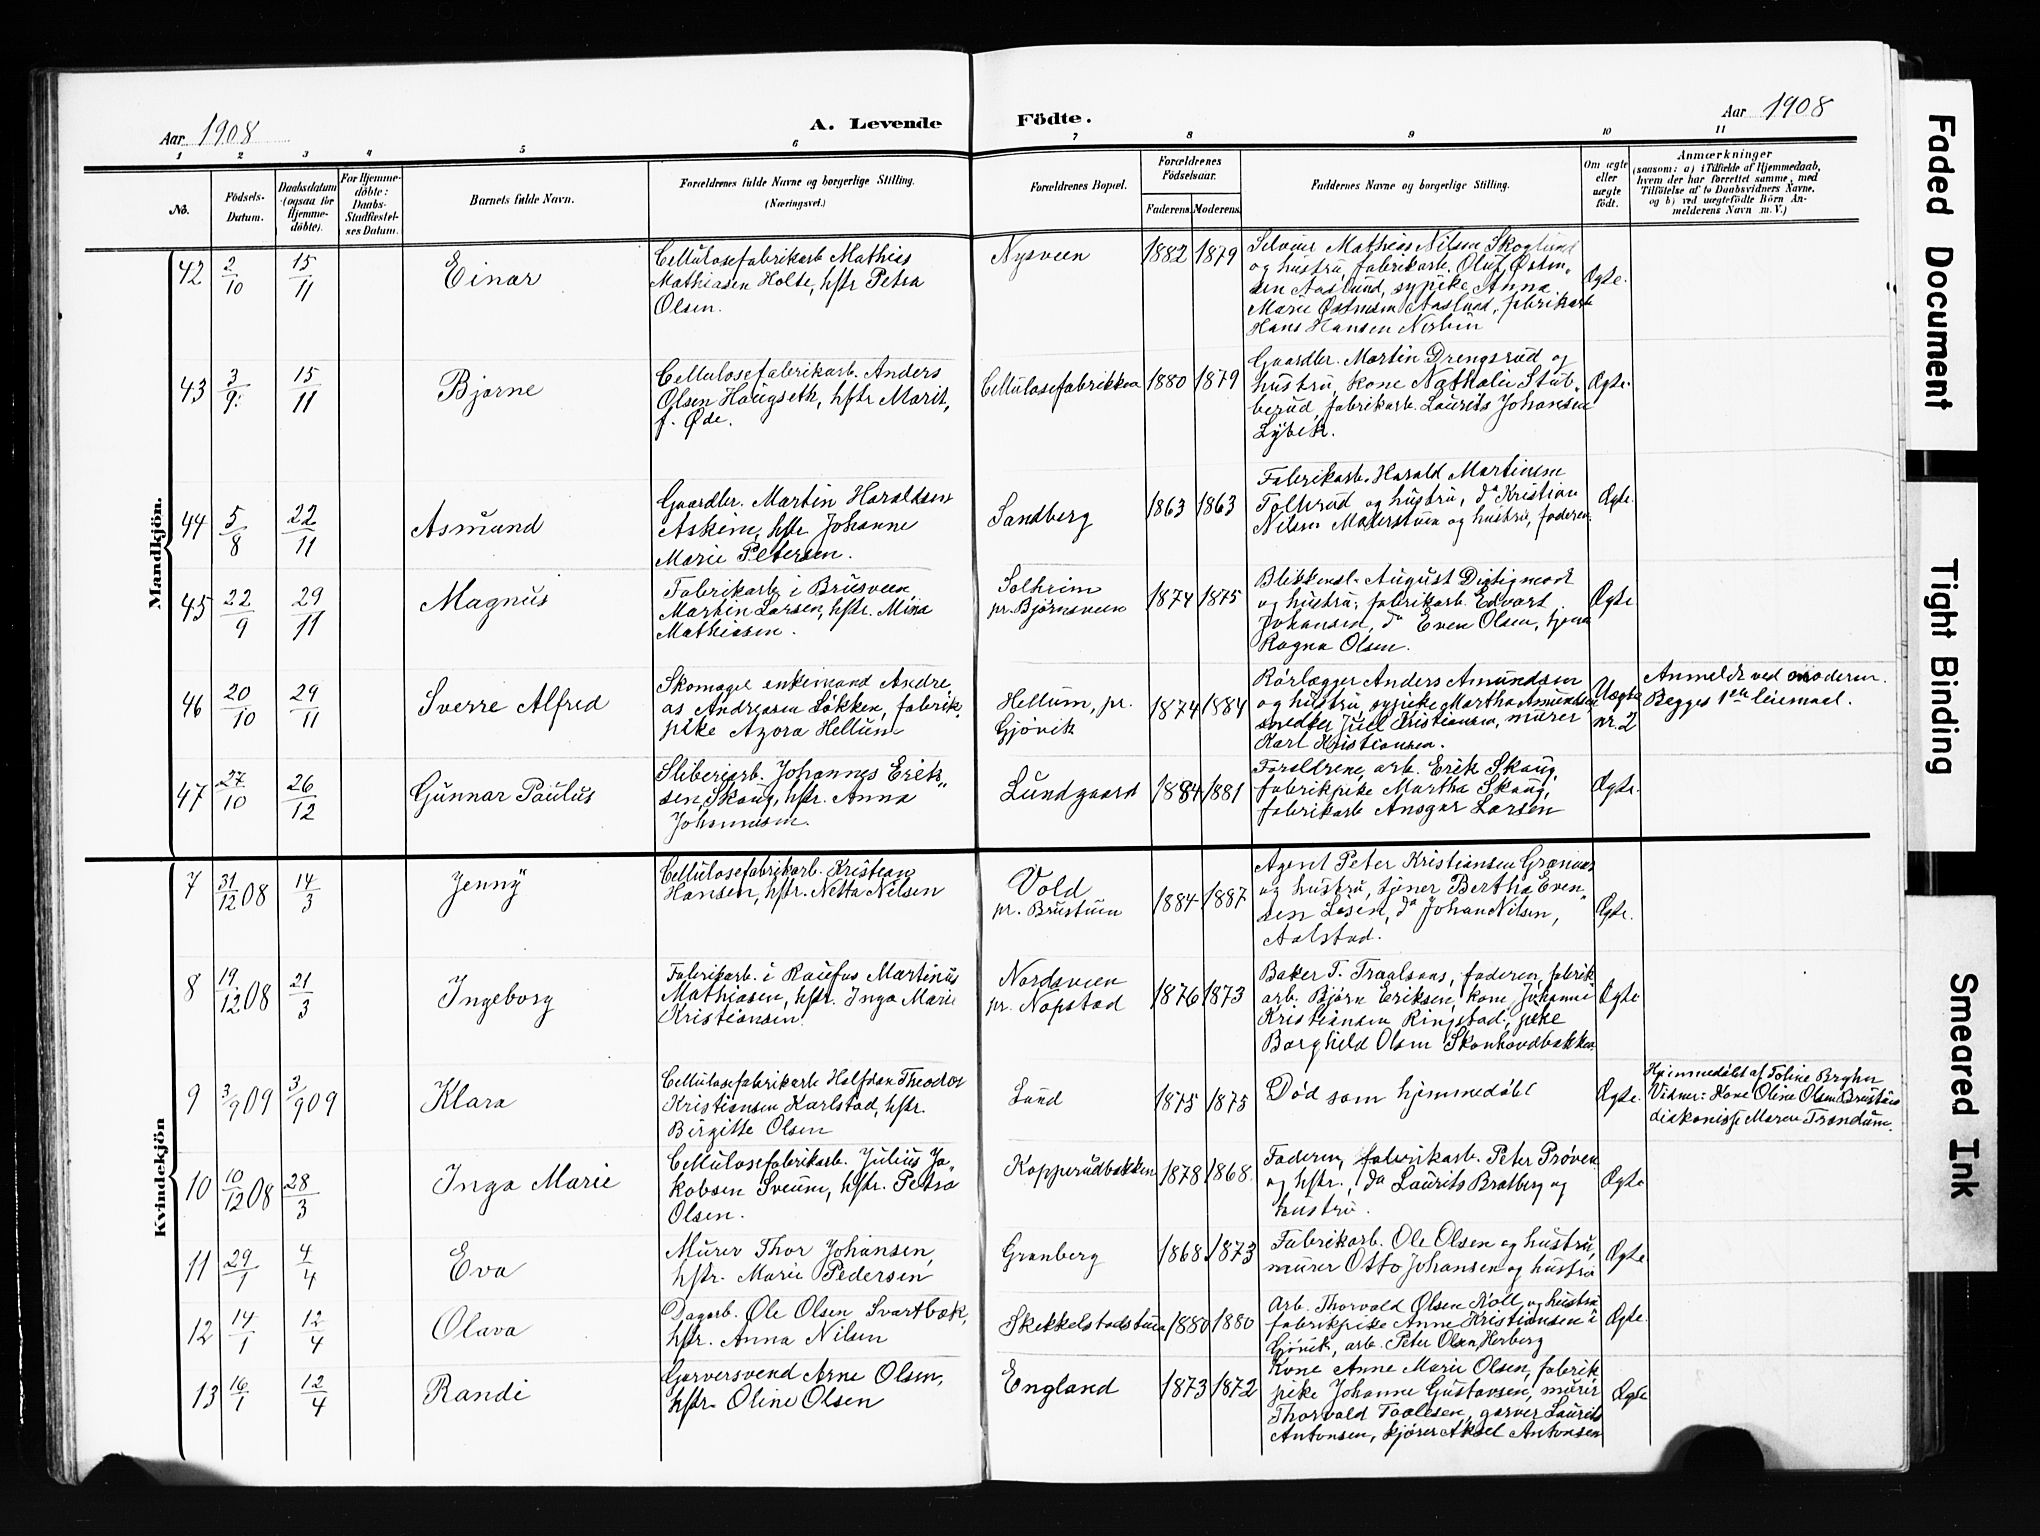 Aar 1908
A. Levende Födte.
Aar 1908
1 2 3 4 5 6 7 8 9 10 11
No.
Födsels-Datum.
Daabsdatum (ogsaa for Hjemme-döbte).
For Hjemme-döbte: Daabs-Stadfæstel-ses Datum.
Barnets fulde Navn.
Forældrenes fulde Navne og borgerlige Stilling.
(Næringsvei.)
Forældrenes Bopæl.
Forældrenes Födselsaar.
Faderens. Moderens.
Faddernes Navne og borgerlige Stilling.
Om ægte eller uægte födt.
Anmærkninger
(saasom: a) i Tilfælde af Hjemmedaab,
hvem der har forrettet samme, med
Tilföielse af to Daabsvidners Navne,
og b) ved uægtefödte Börn An-
melderens Navn m. V.)
Mandkjön.
42 2/10 15/11 Einar
Cellulosefabrikarb Mathias
Mathiasen Holte, hstr Petra
Olsen.
Nysveen 1882 1879
Mathias Nilsen Skoglund
og hustru, fabrikarb. Oluf Østen-
sen Aaslund, sypike Anna
Marie Østensen Aaslund, fabrikarb
Hans Hansen
Ægte.
43 3/9. 15/11 Bjarne
Cellulosefabrikarb. Anders
Olsen Haugseth, hstr Marit,
f. Øde.
Cellulosefabrikken 1880 1879
Gaardbr. Martin Drengsrud og
hustru, kone Nathalie Stub-
berud, fabrikarb. Laurits Johansen
Lybek.
Ægte.
44 5/8 22/11 Asmund
Gaardbr. Martin Haraldsen
Askim, hstr Johanne
Marie Petersen.
Sandberg 1863 1863
Fabrikarb. Harald Martinsen
Tollerud og hustru, do Kristian
Nilsen og hustru, faderen.
Ægte
45 22/9 29/11 Magnus
Fabrikarb i Brusveen
Martin Larsen, hstr. Mina
Mathiasen.
Solheim
pr. Bjørnsveen 1874 1875
Blikkensl. August
og hustru, fabrikarb. Edvart
Johansen, do Even Olsen, tjener
Ragna Olsen.
Ægte
46 20/10 29/11 Sverre Alfred
Skomager enkemand Andre-
as Andreasen Løkken, fabrik-
pike Azora Hellum
Hellum, pr.
Gjövik 1874 1884
Rörlægger Anders Amundsen
og hustru, sypike Martha Amundsen
snedker Juel Kristiansen, murer
Karl Kristiansen.
Uægte
nr. 2
Anmeldt ved moderen.
Begges 1ste leiemaal.
47 27/10 26/12 Gunnar Paulus
Sliberiarb. Johannes Erik-
sen Skaug, hstr. Anna
Johannesen.
Lundgaard 1884 1881
Forældrene, arb. Erik Skaug,
fabrikpike Martha Skaug,
fabrikarb Ansgar Larsen
Ægte.
Kvindekjön
7 31/12 08 14/3 Jenny
Cellulosefabrikarb. Kristian
Hansen, hstr. Netta Nilsen
Vold
pr. Brustuen 1884 1887
Agent Peter Kristiansen
og hustru, tjener Bertha Even-
sen Løsen, do Johan Nilsen,
Aalstad.
Ægte.
8 19/12 08 21/3 Ingeborg
Fabrikarb. i Raufos Martinus
Mathiasen, hstr. Inga Marie
Kristiansen
Nordsveen
pr. Nøpstad 1876 1873
Baker T. Traalsaas, faderen, fabrik-
arb. Bjørn Eriksen, kone Johanne
Kristiansen Ringstad, pike
Borghild Olsen Skonhovdbakken
Ægte
9 3/9 09 3/9 09 Klara
Cellulosefabrikarb Halfdan Theodor
Kristiansen Karlstad, hstr.
Birgitte Olsen
Lund 1875 1875
Död som hjemmedöbt
Ægte.
Hjemmedöbt af Toline Bryhn
Vidner: Kone Oline Olsen Brustuen
diakonisse Maren Trondum.
10 10/12 08 28/3 Inga Marie
Cellulosefabrikarb. Julius Ja-
kobsen Sveum, hstr. Petra
Olsen.
Kopperudbakken 1878 1868.
Faderen, fabrikarb. Peter Prøven
og hstr., do Laurits Bratberg og
hustru.
Ægte
11 29/1 4/4 Eva
Murer Thor Johansen,
hstr. Marie Pedersen
Granberg 1868 1873
Fabrikarb. Ole Olsen og hustru,
murer Otto Johansen og hustru
Ægte
12 14/1 12/4 Olava
Dagarb. Ole Olsen Svartbæk,
hstr. Anna Nilsen
Skikkelstadstuen 1880 1880
Arb. Thorvald Olsen Roll og hustru
fabrikpike Anne Kristiansen i
Gjövik, arb. Peter Olsen Herberg
Ægte
13 16/1 12/4 Randi
Garversvend Arne Olsen,
hstr. Oline Olsen
England 1873 1872
Kone Anne Marie Olsen, fabrik-
pike Johanne Gustavsen, murer
Thorvald Taalesen, garver Laurits
Antonsen, kjører Aksel Antonsen
Ægte
Faded Document
Tight Binding
Smeared Ink